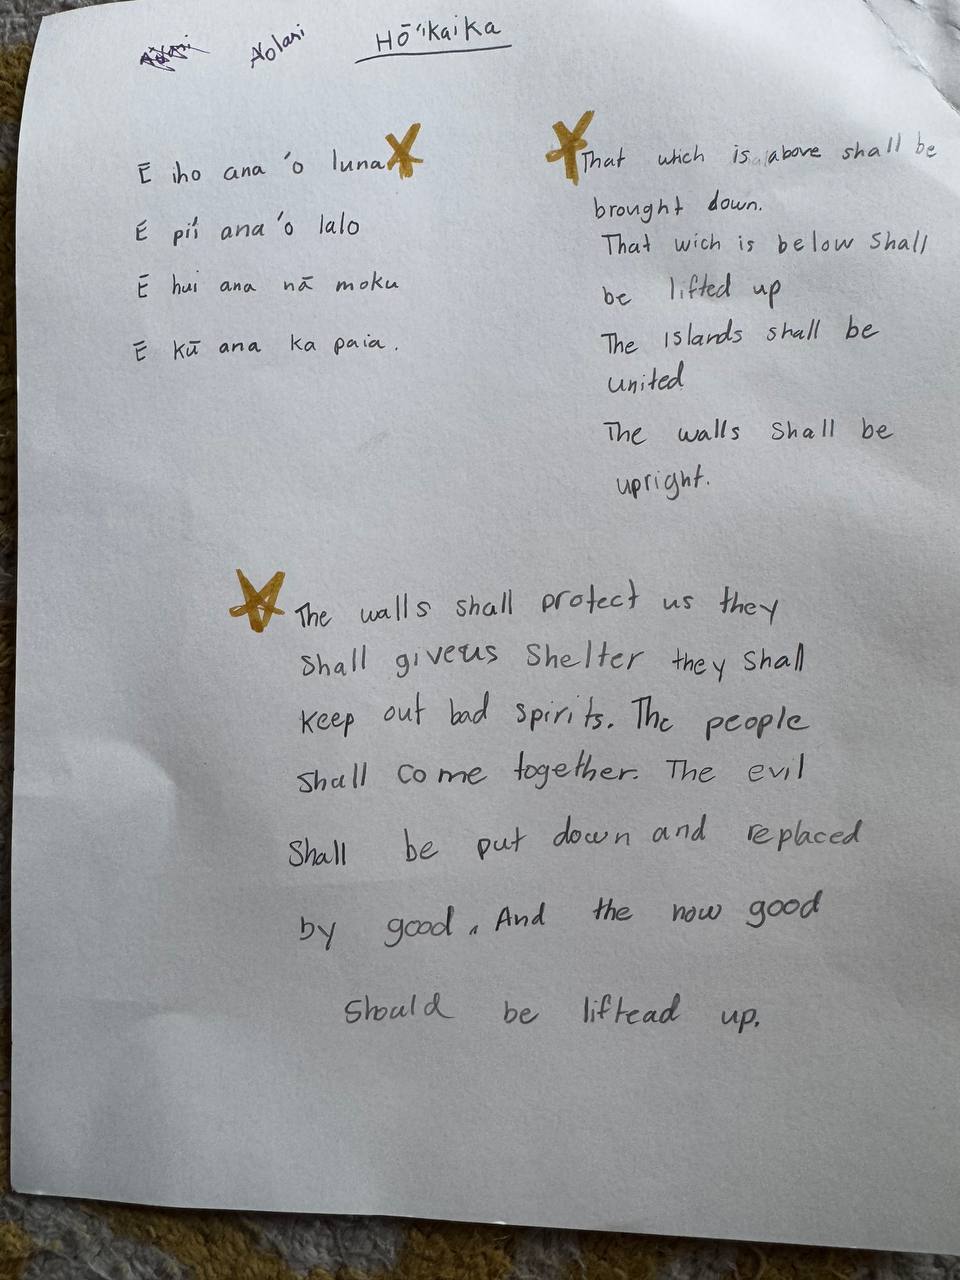 Aolani Hō'ikaika
Ē iho ana 'o luna
Ē pi'i ana 'o lalo
Ē hui ana nā moku
Ē kū ana ka paia.
That which is above shall be
brought down.
That wich is below shall
be lifted up
The islands shall be
united
The walls shall be
upright.
The walls shall protect us they
shall give us shelter they shall
keep out bad spirits. The people
shall come together. The evil
shall be put down and replaced
by good. And the now good
should be liftead up.